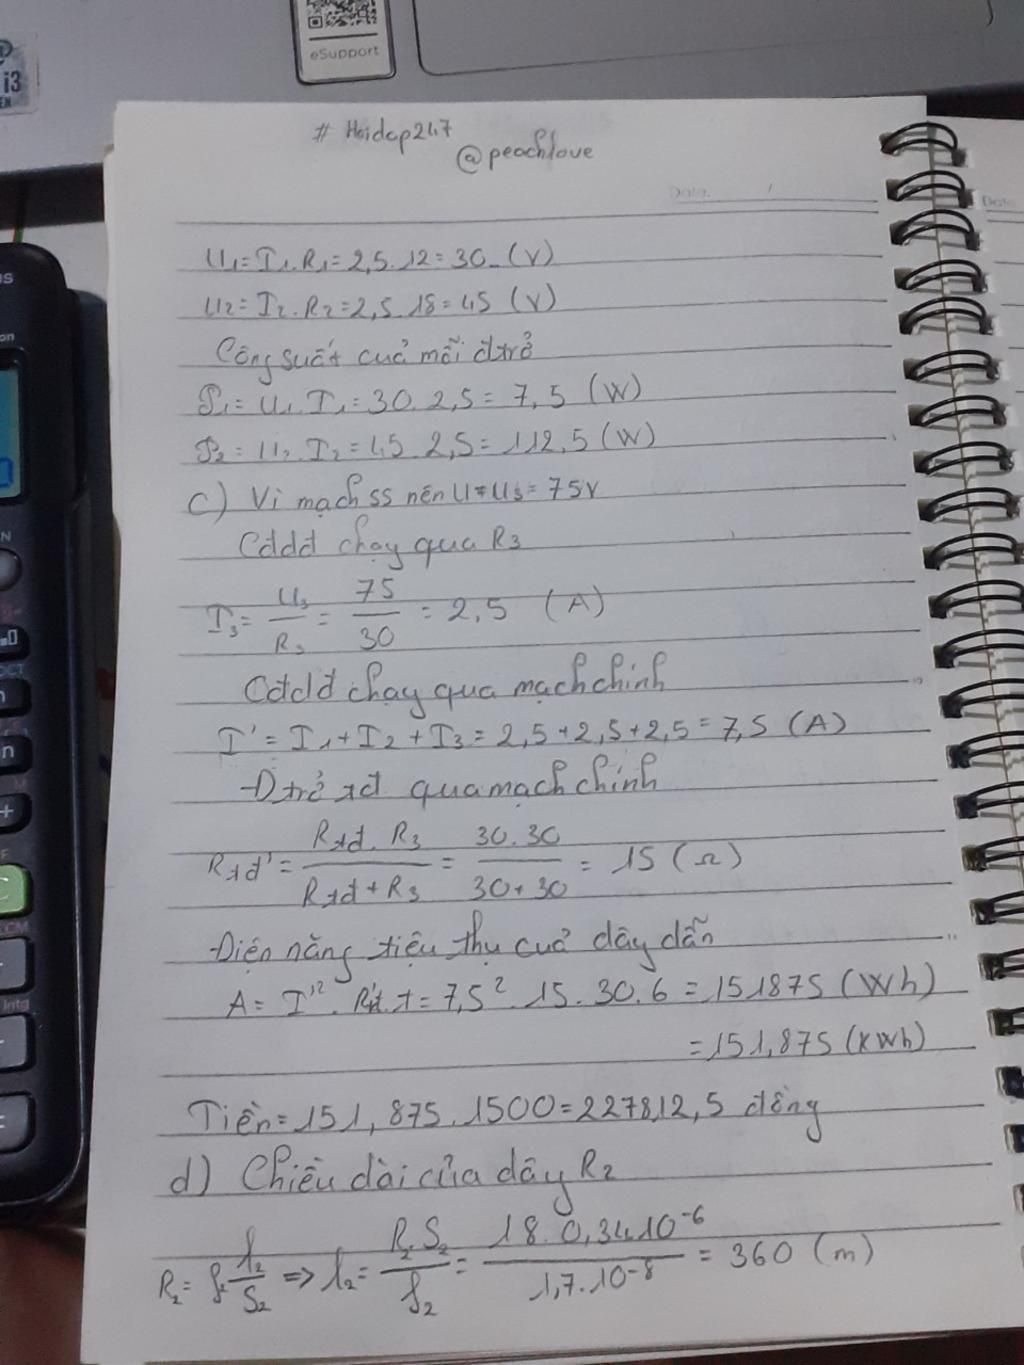 i3
eSupport
# Hoidap247
@peachlove
Date. /
U1 = I1.R1 = 2,5.12 = 30 (V)
U2 = I2.R2 = 2,5.18 = 45 (V)
Công suất cuả mỗi đtrở
P1 = U1.I1 = 30.2,5 = 7,5 (W)
P2 = U2.I2 = 45.2,5 = 112,5 (W)
c) Vì mạch ss nên U = U3 = 75V
Cđdđ chạy qua R3
I3 = U3/R3 = 75/30 = 2,5 (A)
Cđdđ chạy qua mạch chính
I' = I1 + I2 + I3 = 2,5 + 2,5 + 2,5 = 7,5 (A)
Đtrở tđ qua mạch chính
Rtđ' = Rtđ.R3/Rtđ+R3 = 30.30/30+30 = 15 (Ω)
Điện năng tiêu thụ cuả dây dẫn
A = I'².Rtđ.t = 7,5².15.30.6 = 151875 (Wh)
= 151,875 (KWh)
Tiền = 151,875.1500 = 227812,5 đồng
d) Chiều dài của dây R2
R2 = ρ2 l2/S2 => l2 = R2.S2/ρ2 = 18.0,34.10⁻⁶/1,7.10⁻⁸ = 360 (m)